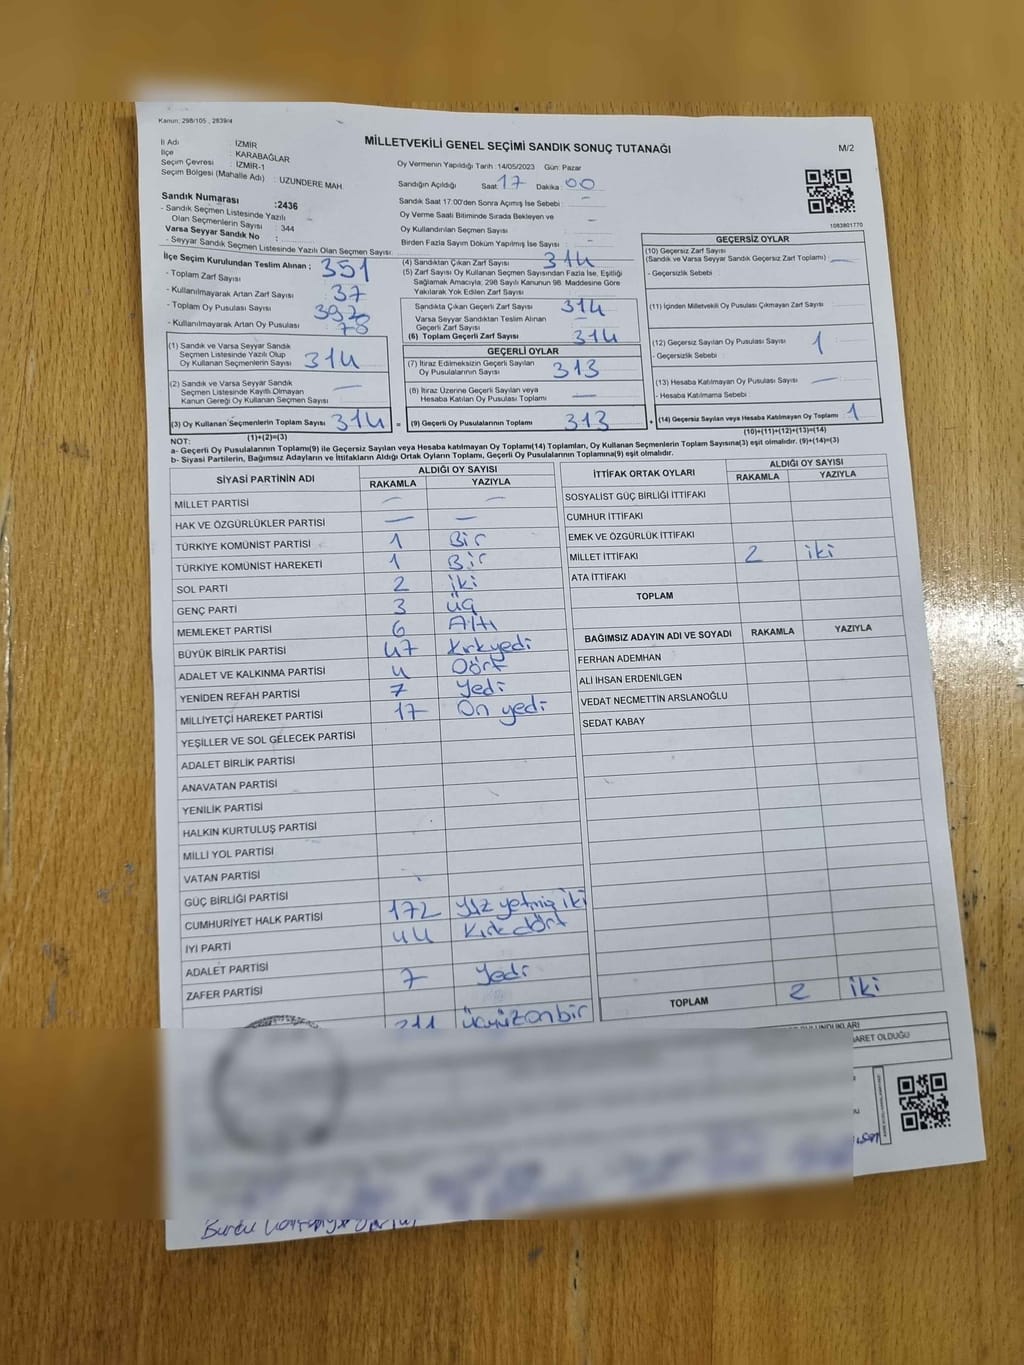 Kanun: 298/105 , 2839/4
MİLLETVEKİLİ GENEL SEÇİMİ SANDIK SONUÇ TUTANAĞI
M/2
İl Adı : İZMİR
İlçe : KARABAĞLAR
Seçim Çevresi : İZMİR-1
Seçim Bölgesi (Mahalle Adı) : UZUNDERE MAH.
Oy Vermenin Yapıldığı Tarih :14/05/2023 Gün: Pazar
Sandığın Açıldığı Saat: 17 Dakika: 00
Sandık Saat 17.00'den Sonra Açımış İse Sebebi : -
Oy Verme Saati Bitiminde Sırada Bekleyen ve
Oy Kullandırılan Seçmen Sayısı -
Birden Fazla Sayım Döküm Yapılmış İse Sayısı : -
1083801770
Sandık Numarası :2436
- Sandık Seçmen Listesinde Yazılı
Olan Seçmenlerin Sayısı : 344
Varsa Seyyar Sandık No :
- Seyyar Sandık Seçmen Listesinde Yazılı Olan Seçmen Sayısı:
İlçe Seçim Kurulundan Teslim Alınan ;
- Toplam Zarf Sayısı 351
- Kullanılmayarak Artan Zarf Sayısı 37
- Toplam Oy Pusulası Sayısı
- Kullanılmayarak Artan Oy Pusulası 78
(1) Sandık ve Varsa Seyyar Sandık
Seçmen Listesinde Yazılı Olup
Oy Kullanan Seçmenlerin Sayısı 314
(2) Sandık ve Varsa Seyyar Sandık
Seçmen Listesinde Kayıtlı Olmayan
Kanun Gereği Oy Kullanan Seçmen Sayısı -
(3) Oy Kullanan Seçmenlerin Toplam Sayısı 314 =
(1)+(2)=(3)
(4) Sandıktan Çıkan Zarf Sayısı 314
(5) Zarf Sayısı Oy Kullanan Seçmen Sayısından Fazla İse, Eşitliği
Sağlamak Amacıyla; 298 Sayılı Kanunun 98. Maddesine Göre
Yakılarak Yok Edilen Zarf Sayısı
Sandıkta Çıkan Geçerli Zarf Sayısı 314
Varsa Seyyar Sandıktan Teslim Alınan
Geçerli Zarf Sayısı -
(6) Toplam Geçerli Zarf Sayısı 314
GEÇERLİ OYLAR
(7) İtiraz Edilmeksizin Geçerli Sayılan
Oy Pusulalarının Sayısı 313
(8) İtiraz Üzerine Geçerli Sayılan veya
Hesaba Katılan Oy Pusulası Toplamı -
(9) Geçerli Oy Pusulalarının Toplamı 313 +
GEÇERSİZ OYLAR
(10) Geçersiz Zarf Sayısı
(Sandık ve Varsa Seyyar Sandık Geçersiz Zarf Toplamı) -
- Geçersizlik Sebebi :
(11) İçinden Milletvekili Oy Pusulası Çıkmayan Zarf Sayısı
(12) Geçersiz Sayılan Oy Pusulası Sayısı : 1
- Geçersizlik Sebebi :
(13) Hesaba Katılmayan Oy Pusulası Sayısı -
- Hesaba Katılmama Sebebi
(14) Geçersiz Sayılan veya Hesaba Katılmayan Oy Toplamı 1
(10)+(11)+(12)+(13)=(14)
NOT:
a- Geçerli Oy Pusulalarının Toplamı(9) ile Geçersiz Sayılan veya Hesaba katılmayan Oy Toplamı(14) Toplamları, Oy Kullanan Seçmenlerin Toplam Sayısına(3) eşit olmalıdır. (9)+(14)=(3)
b- Siyasi Partilerin, Bağımsız Adayların ve İttifakların Aldığı Ortak Oyların Toplamı, Geçerli Oy Pusulalarının Toplamına(9) eşit olmalıdır.
SİYASİ PARTİNİN ADI ALDIĞI OY SAYISI
RAKAMLA YAZIYLA
MİLLET PARTİSİ - -
HAK VE ÖZGÜRLÜKLER PARTİSİ - -
TÜRKİYE KOMÜNİST PARTİSİ 1 Bir
TÜRKİYE KOMÜNİST HAREKETİ 1 Bir
SOL PARTİ 2 iki
GENÇ PARTİ 3 üç
MEMLEKET PARTİSİ 6 Altı
BÜYÜK BİRLİK PARTİSİ 47 Kırkyedi
ADALET VE KALKINMA PARTİSİ 4 Dört
YENİDEN REFAH PARTİSİ 7 Yedi
MİLLİYETÇİ HAREKET PARTİSİ 17 On yedi
YEŞİLLER VE SOL GELECEK PARTİSİ
ADALET BİRLİK PARTİSİ
ANAVATAN PARTİSİ
YENİLİK PARTİSİ
HALKIN KURTULUŞ PARTİSİ
MİLLİ YOL PARTİSİ
VATAN PARTİSİ
GÜÇ BİRLİĞİ PARTİSİ
CUMHURİYET HALK PARTİSİ 172 yüz yetmiş iki
İYİ PARTİ 44 Kırk dört
ADALET PARTİSİ
ZAFER PARTİSİ 7 Yedi
311 üçyüzonbir
İTTİFAK ORTAK OYLARI ALDIĞI OY SAYISI
RAKAMLA YAZIYLA
SOSYALİST GÜÇ BİRLİĞİ İTTİFAKI
CUMHUR İTTİFAKI
EMEK VE ÖZGÜRLÜK İTTİFAKI
MİLLET İTTİFAKI 2 iki
ATA İTTİFAKI
TOPLAM
BAĞIMSIZ ADAYIN ADI VE SOYADI RAKAMLA YAZIYLA
FERHAN ADEMHAN
ALİ İHSAN ERDENİLGEN
VEDAT NECMETTİN ARSLANOĞLU
SEDAT KABAY
TOPLAM 2 iki
BULUNDUKLARI
İBARET OLDUĞU